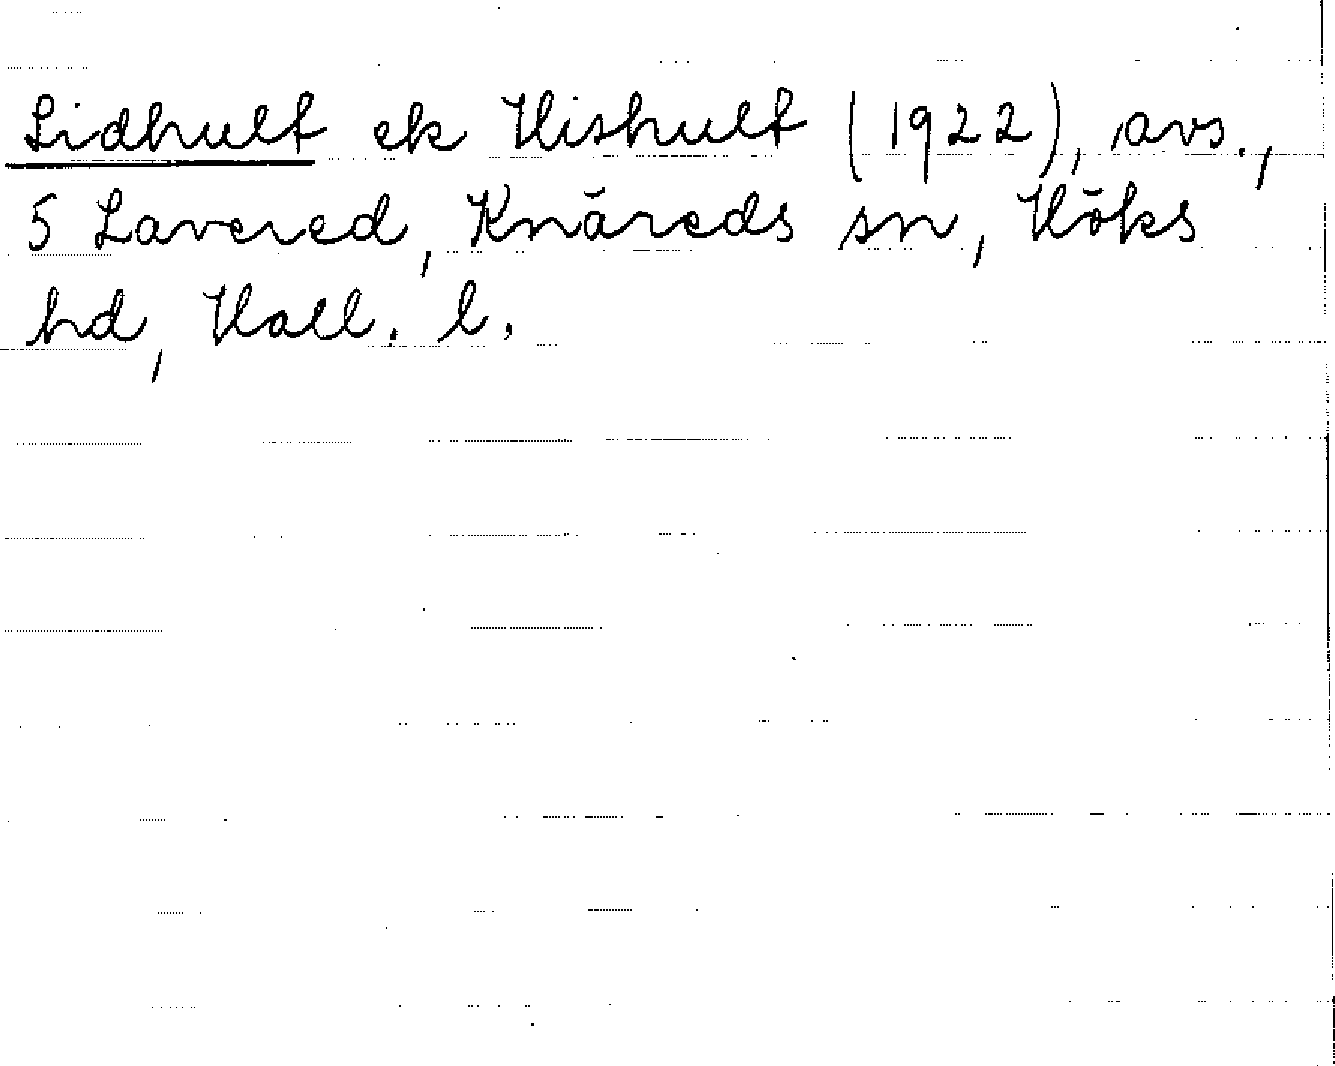 Lidhult ek Hishult (1922), avs.,
5 Lavered, Knäreds sn, Höks
hd, Hall. l.